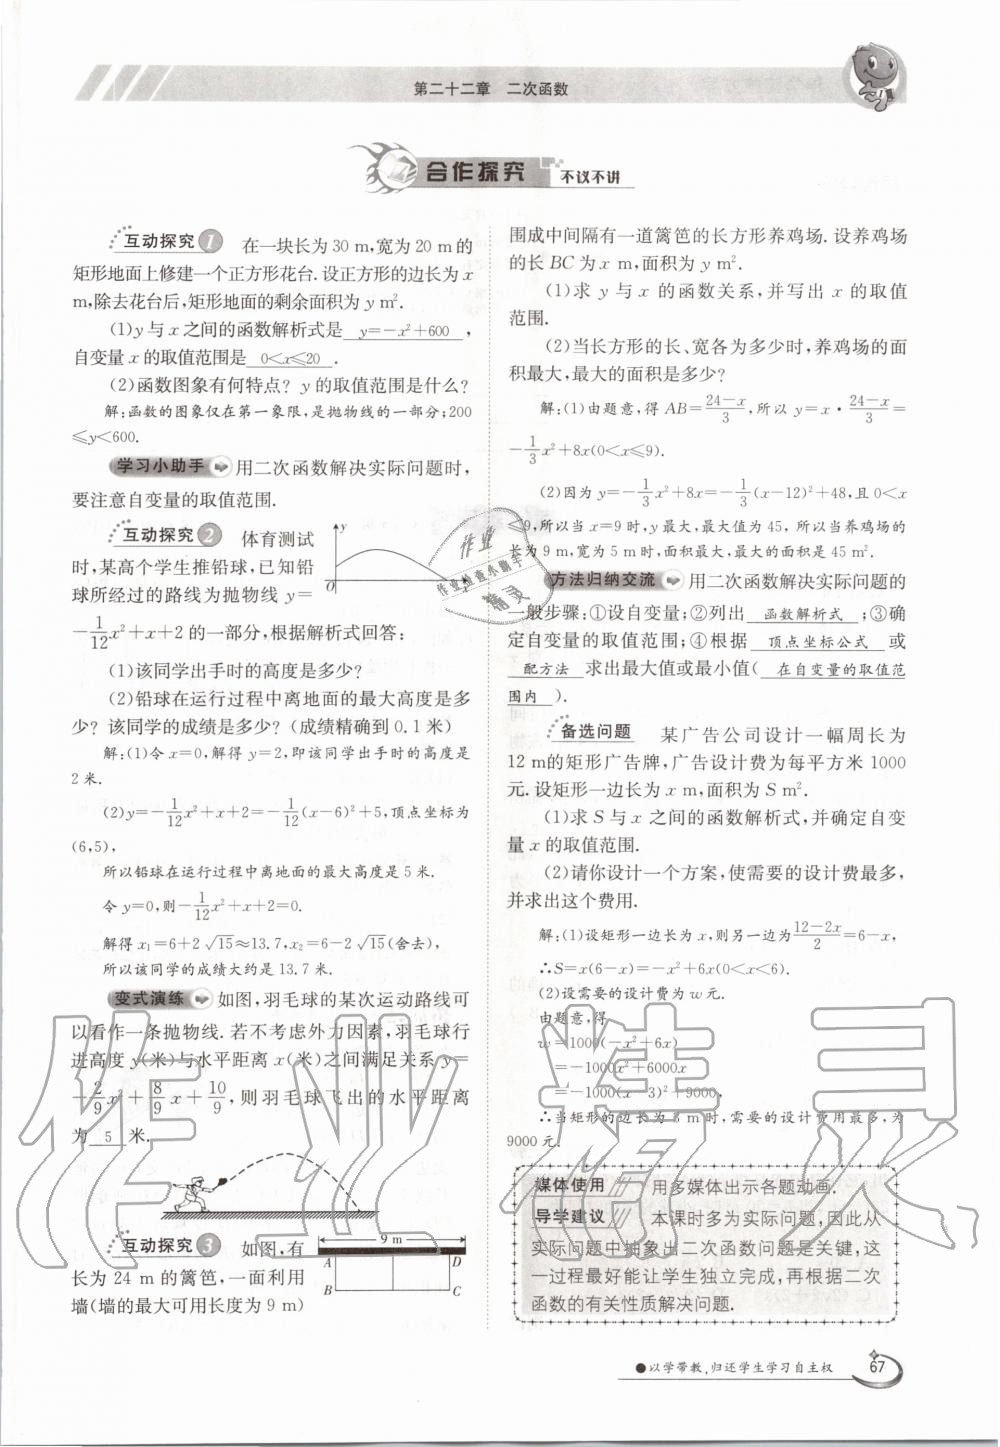 第二十二章　二次函数
合作探究 不议不讲
互动探究1　在一块长为30 m,宽为20 m的
矩形地面上修建一个正方形花台.设正方形的边长为x
m,除去花台后,矩形地面的剩余面积为y m².
(1)y与x之间的函数解析式是 y=-x²+600 ,
自变量x的取值范围是 0<x≤20 .
(2)函数图象有何特点？y的取值范围是什么？
解:函数的图象仅在第一象限,是抛物线的一部分;200
≤y<600.
学习小助手　用二次函数解决实际问题时,
要注意自变量的取值范围.
互动探究2　体育测试
时,某高个学生推铅球,已知铅
球所经过的路线为抛物线y=
-1/12x²+x+2的一部分,根据解析式回答:
(1)该同学出手时的高度是多少？
(2)铅球在运行过程中离地面的最大高度是多
少？该同学的成绩是多少？(成绩精确到0.1米)
解:(1)令x=0,解得y=2,即该同学出手时的高度是
2米.
(2)y=-1/12x²+x+2=-1/12(x-6)²+5,顶点坐标为
(6,5),
所以铅球在运行过程中离地面的最大高度是5米.
令y=0,则-1/12x²+x+2=0.
解得x₁=6+2√15≈13.7,x₂=6-2√15(舍去),
所以该同学的成绩大约是13.7米.
变式演练　如图,羽毛球的某次运动路线可
以看作一条抛物线.若不考虑外力因素,羽毛球行
进高度y(米)与水平距离x(米)之间满足关系y=
-2/9x²+8/9x+10/9,则羽毛球飞出的水平距离
为 5 米.
互动探究3　如图,有
长为24 m的篱笆,一面利用
墙(墙的最大可用长度为9 m)
y
O
x
9 m
A
D
B
C
围成中间隔有一道篱笆的长方形养鸡场.设养鸡场
的长BC为x m,面积为y m².
(1)求y与x的函数关系,并写出x的取值
范围.
(2)当长方形的长、宽各为多少时,养鸡场的面
积最大,最大的面积是多少？
解:(1)由题意,得AB=(24-x)/3,所以y=x·(24-x)/3=
-1/3x²+8x(0<x≤9).
(2)因为y=-1/3x²+8x=-1/3(x-12)²+48,且0<x
≤9,所以当x=9时,y最大,最大值为45,所以当养鸡场的
长为9 m,宽为5 m时,面积最大,最大的面积是45 m².
方法归纳交流　用二次函数解决实际问题的
一般步骤:①设自变量;②列出 函数解析式 ;③确
定自变量的取值范围;④根据 顶点坐标公式 或
配方法 求出最大值或最小值( 在自变量的取值范
围内 ).
备选问题　某广告公司设计一幅周长为
12 m的矩形广告牌,广告设计费为每平方米1000
元.设矩形一边长为x m,面积为S m².
(1)求S与x之间的函数解析式,并确定自变
量x的取值范围.
(2)请你设计一个方案,使需要的设计费最多,
并求出这个费用.
解:(1)设矩形一边长为x,则另一边为(12-2x)/2=6-x,
∴S=x(6-x)=-x²+6x(0<x<6).
(2)设需要的设计费为w元.
由题意,得
w=1000(-x²+6x)
=-1000x²+6000x
=-1000(x-3)²+9000,
∴当矩形的边长为3 m时,需要的设计费用最多,为
9000元.
媒体使用　用多媒体出示各题动画.
导学建议　本课时多为实际问题,因此从
实际问题中抽象出二次函数问题是关键,这
一过程最好能让学生独立完成,再根据二次
函数的有关性质解决问题.
●以学带教,归还学生学习自主权
67
作业
作业检查小助手
精灵
作业精灵